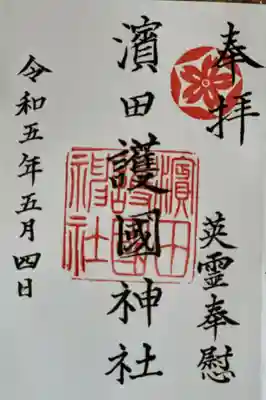 奉拝
英霊奉慰
濱田護國神社
濱田護國神社
令和五年五月四日